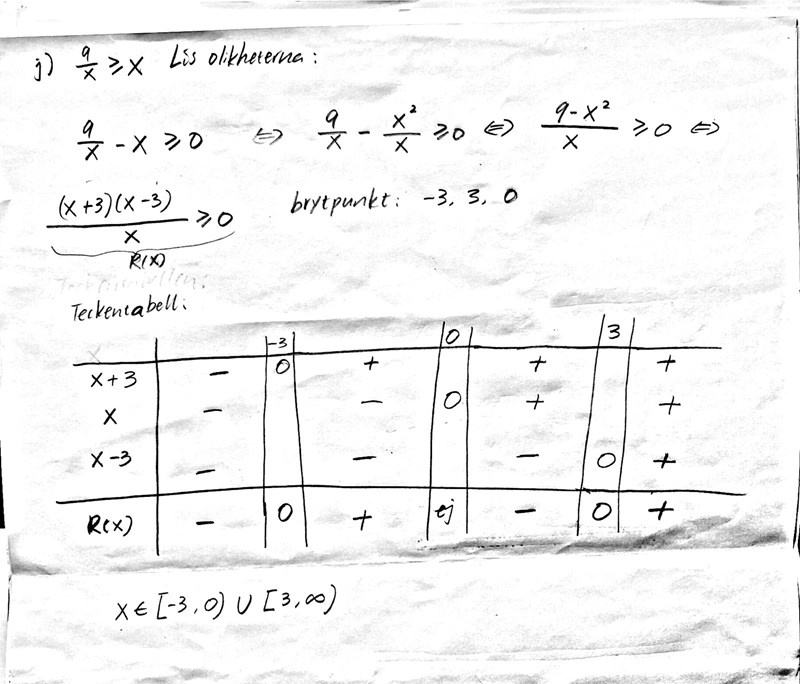 j) 9/x ≥ x Lös olikheterna:
9/x - x ≥ 0 ⇔ 9/x - x²/x ≥ 0 ⇔ (9-x²)/x ≥ 0 ⇔
(x+3)(x-3)/x ≥ 0 brytpunkt: -3, 3, 0
R(x)
Teckentabell:
-3 0 3
x+3 - 0 + + +
x - - 0 + +
x-3 - - - 0 +
R(x) - 0 + ej - 0 +
x ∈ [-3, 0) ∪ [3, ∞)